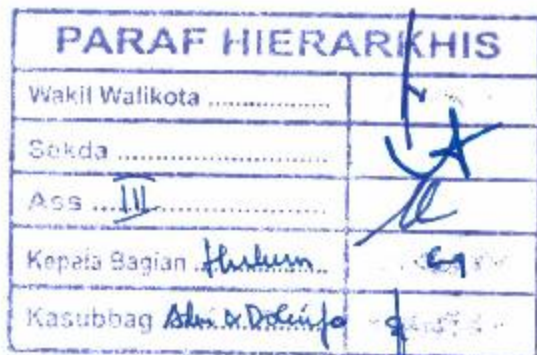 PARAF HIERARKHIS
Wakil Walikota ..................
Sekda ..............................
Ass ....III..........................
Kepala Bagian ..Hukum......
Kasubbag